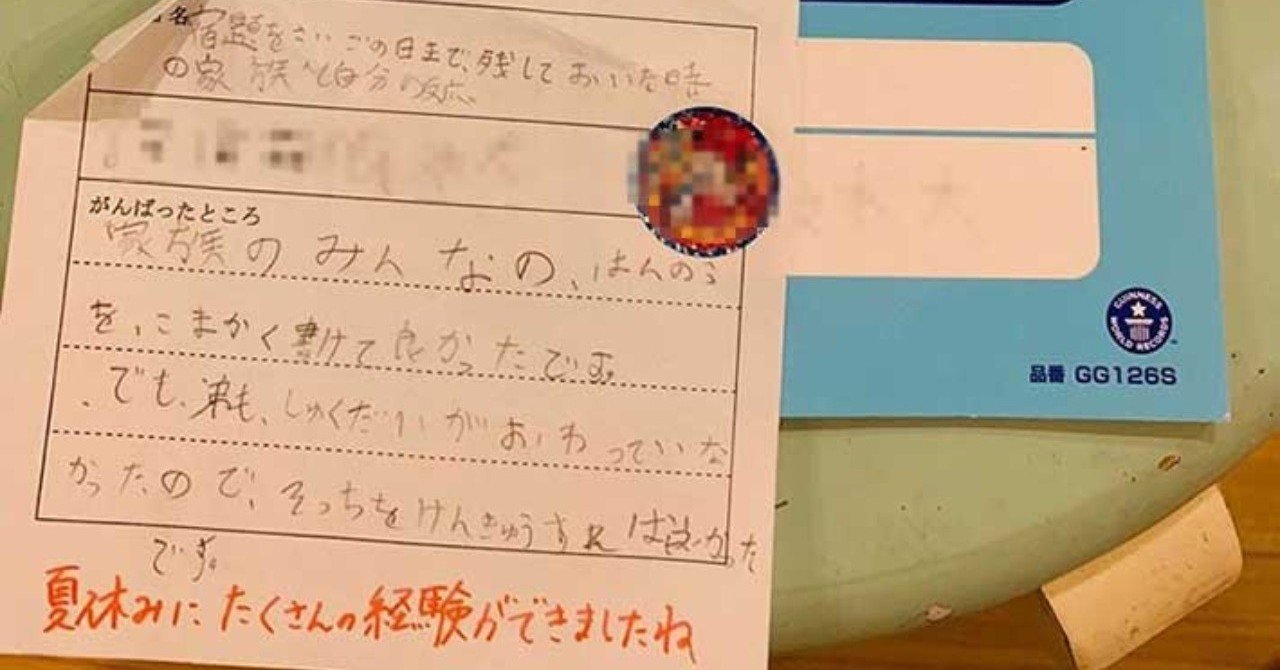 名
宿題をさいごの日まで、残しておいた時
の家族と自分の反応。
がんばったところ
家族のみんなの、はんのう
を、こまかく書けて良かったです。
、でも、弟も、しゅくだいがおわっていな
かったので、そっちをけんきゅうすれば良かった
です。
夏休みにたくさんの経験ができましたね
GUINNESS
WORLD RECORDS
品番 GG126S